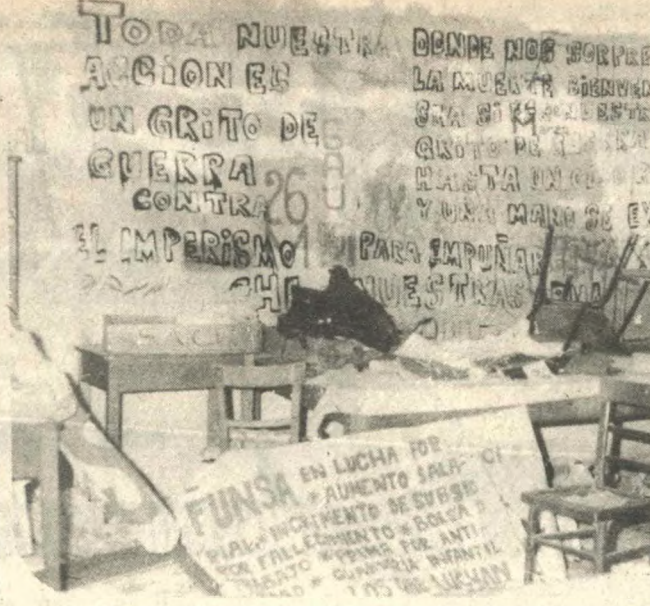 TODA NUESTRA
ACCION ES
UN GRITO DE
GUERRA
CONTRA
EL IMPERISMO
CHE
26
M
GAU
DONDE NOS SORPRE
LA MUERTE BIENVEN
SEA SI
GRITO DE GUERRA
HASTA UN
Y UNA MANO SE EX
PARA EMPUÑAR
NUESTRAS
FUNSA EN LUCHA POR
* AUMENTO SALA-
RIAL * INCREMENTO DE SUBSID
POR FALLECIMIENTO * BOLSA D
TRABAJO * PRIMA POR ANTI
* GUARDERIA INFANTIL
LOS QUE LUCHAN
CI